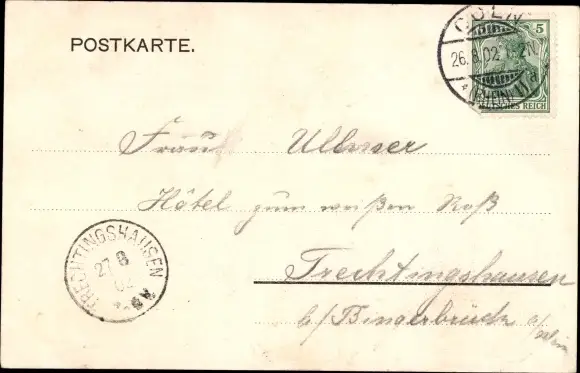 POSTKARTE.
CÖLN
5
26.8.02
(RHEIN) 1
DEUTSCHES REICH
Frau Ullmer
Hôtel zum weißen Roß
Trechtingshausen
b/Bingerbrück a/Rhein
TRECHTINGSHAUSEN
27 8
02